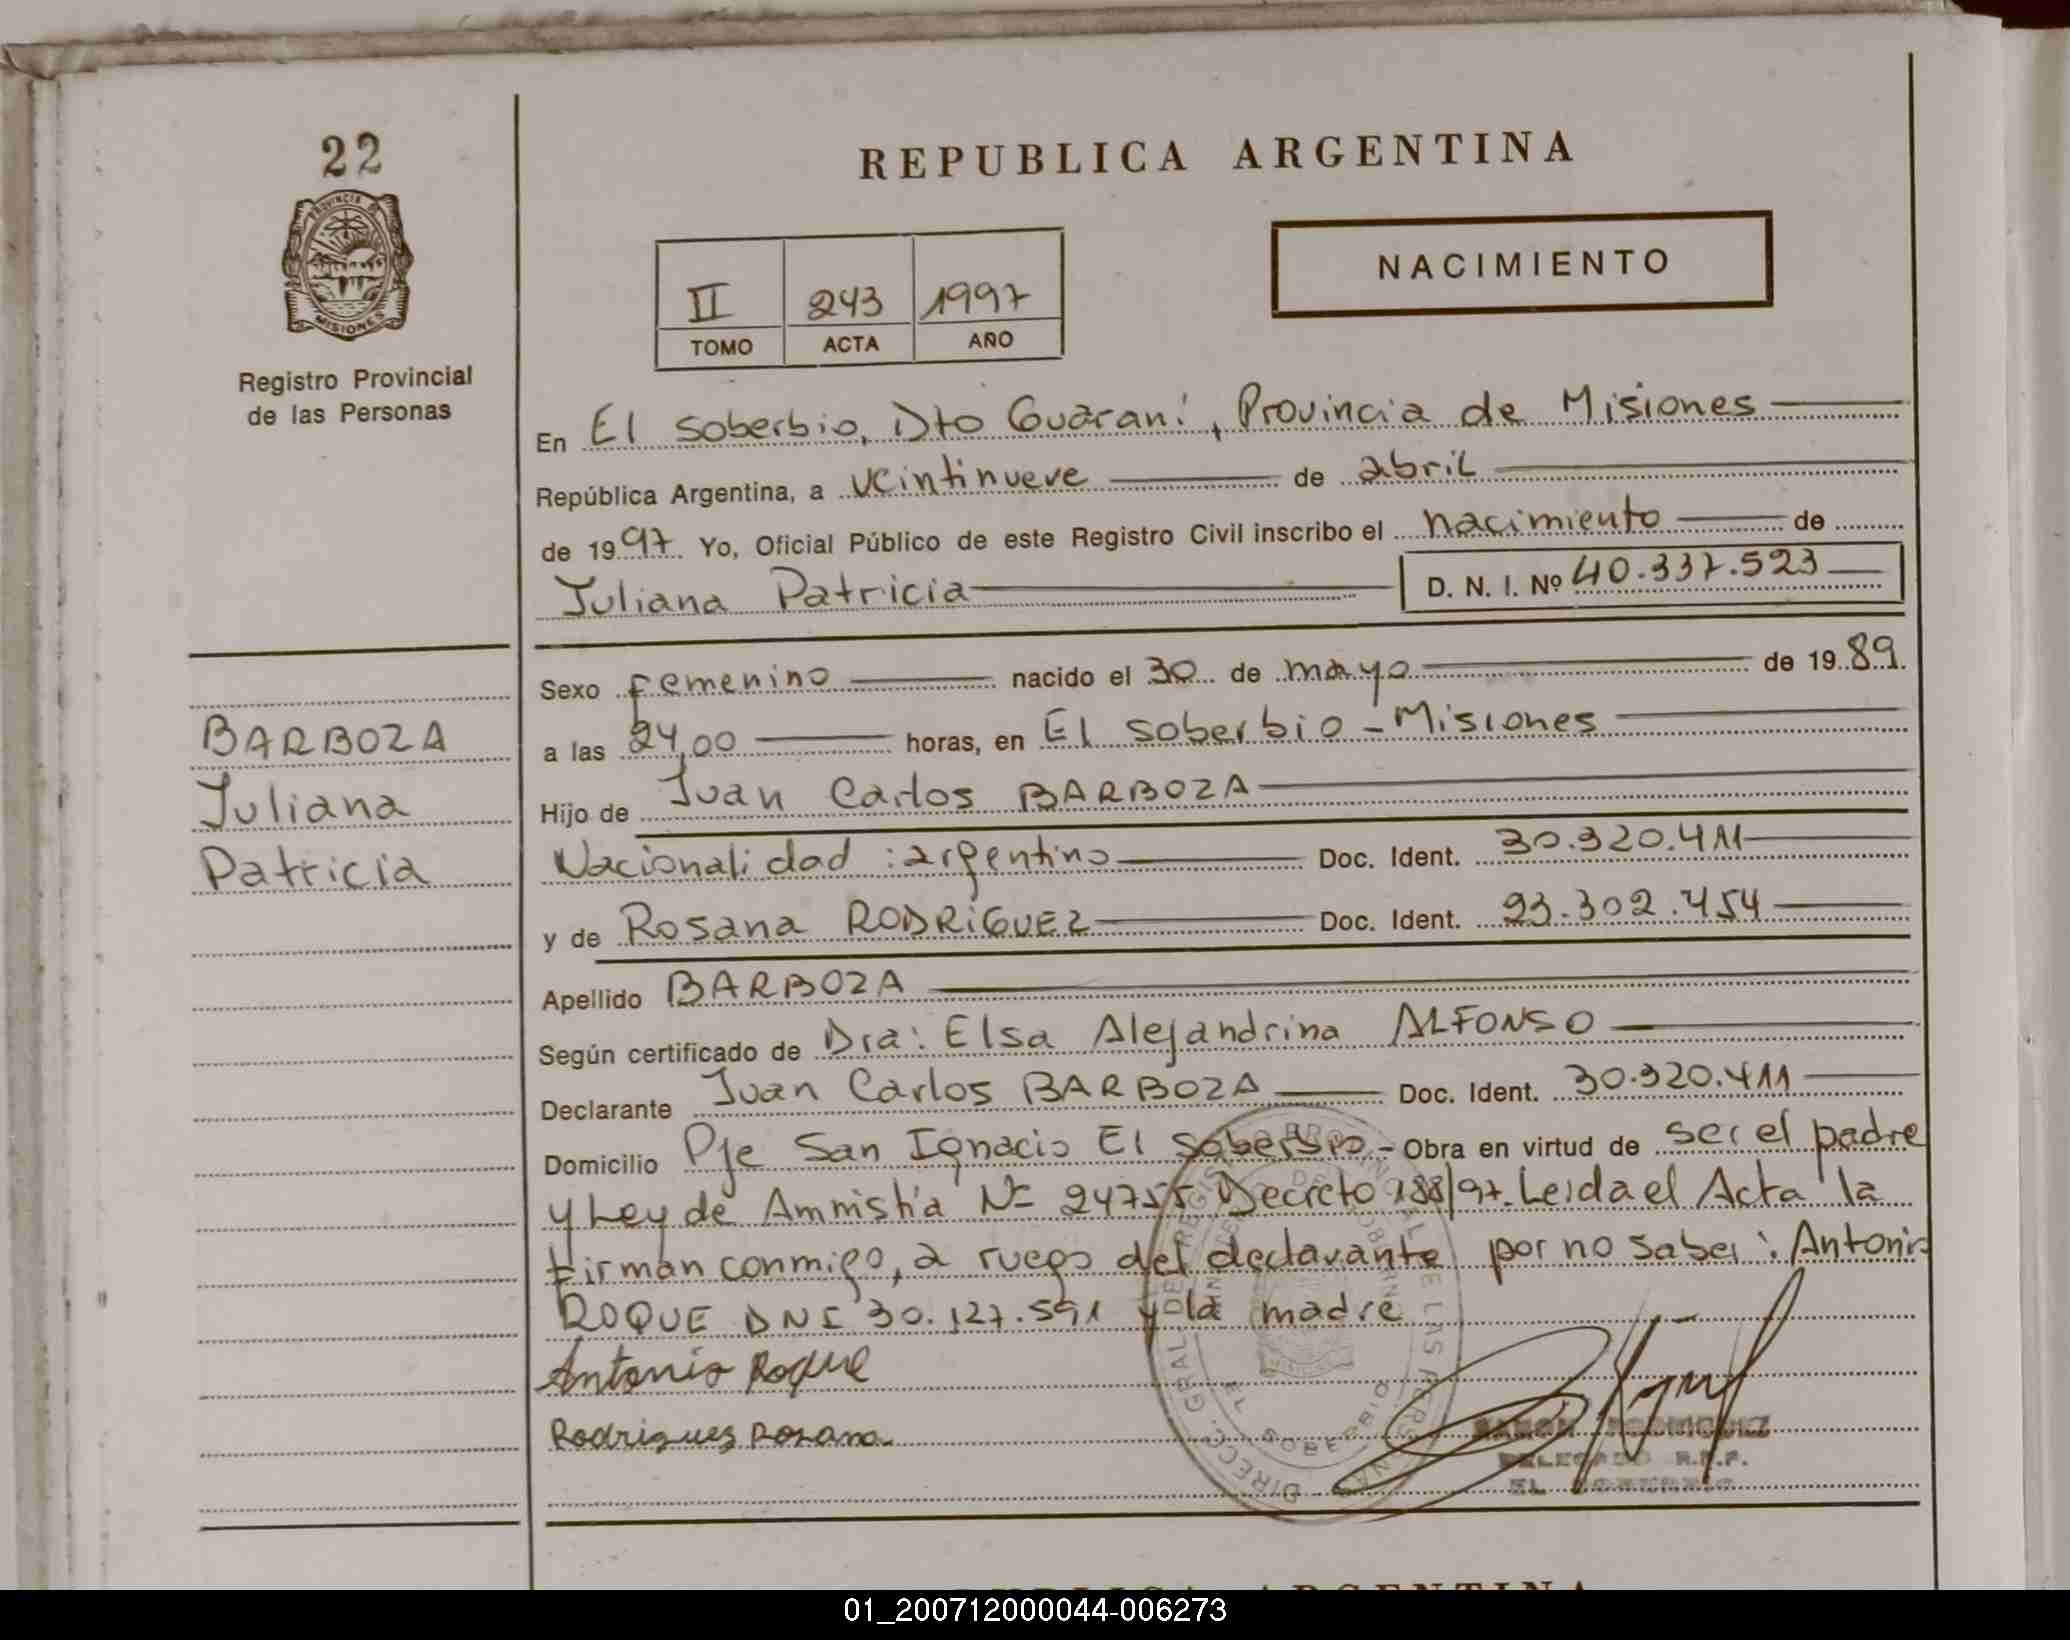 22
PROVINCIA DE
MISIONES
Registro Provincial
de las Personas
REPUBLICA ARGENTINA
II 243 1997
TOMO ACTA AÑO
NACIMIENTO
En El Soberbio, Dto Guaraní, Provincia de Misiones
República Argentina, a veintinueve de abril
de 1997 Yo, Oficial Público de este Registro Civil inscribo el nacimiento de
Juliana Patricia D. N. I. Nº 40.337.523
Sexo femenino nacido el 30 de mayo de 1989
a las 24,00 horas, en El Soberbio - Misiones
Hijo de Juan Carlos BARBOZA
Nacionalidad : argentino Doc. Ident. 30.920.411
y de Rosana RODRiGUEZ Doc. Ident. 23.302.454
Apellido BARBOZA
Según certificado de Dra: Elsa Alejandrina ALFONSO
Declarante Juan Carlos BARBOZA Doc. Ident. 30.920.411
Domicilio Pje San Ignacio El Soberbio - Obra en virtud de ser el padre
y Ley de Amnistía Nº 24755 Decreto 188/97. Leida el Acta la
firman conmigo, a ruego del declarante por no saber: Antonio
ROQUE DNI 30.127.591 y la madre
Antonio Roque
Rodriguez Rosana
BARBOZA
Juliana
Patricia
DIRECC. GRAL DE REGISTRO PROVINCIAL DE LAS PERSONAS
EL SOBERBIO
RAMON RODRIGUEZ
DELEGADO R.P.P.
EL SOBERBIO
01_200712000044-006273